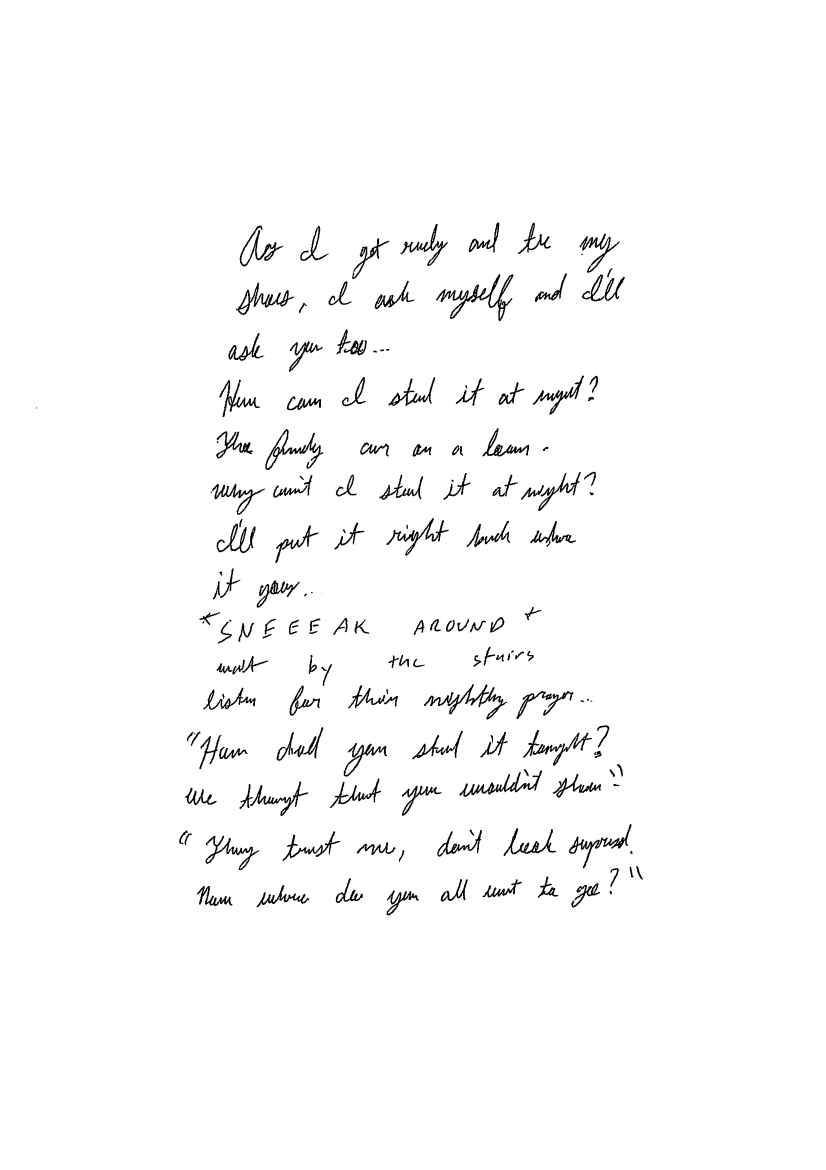 As I get ready and tie my
shoes, I ask myself and I'll
ask you too...
How can I steal it at night?
The family car on a loan.
Why can't I steal it at night?
I'll put it right back where
it goes...
*SNEEEAK AROUND*
wait by the stairs
listen for their nightly prayer...
"How did you steal it tonight?
We thought that you wouldn't show"
"They trust me, don't look suprised.
Now where do you all want to go?"